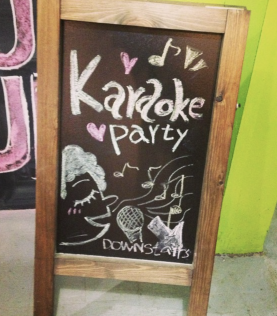 Karaoke
party
DOWNStairs